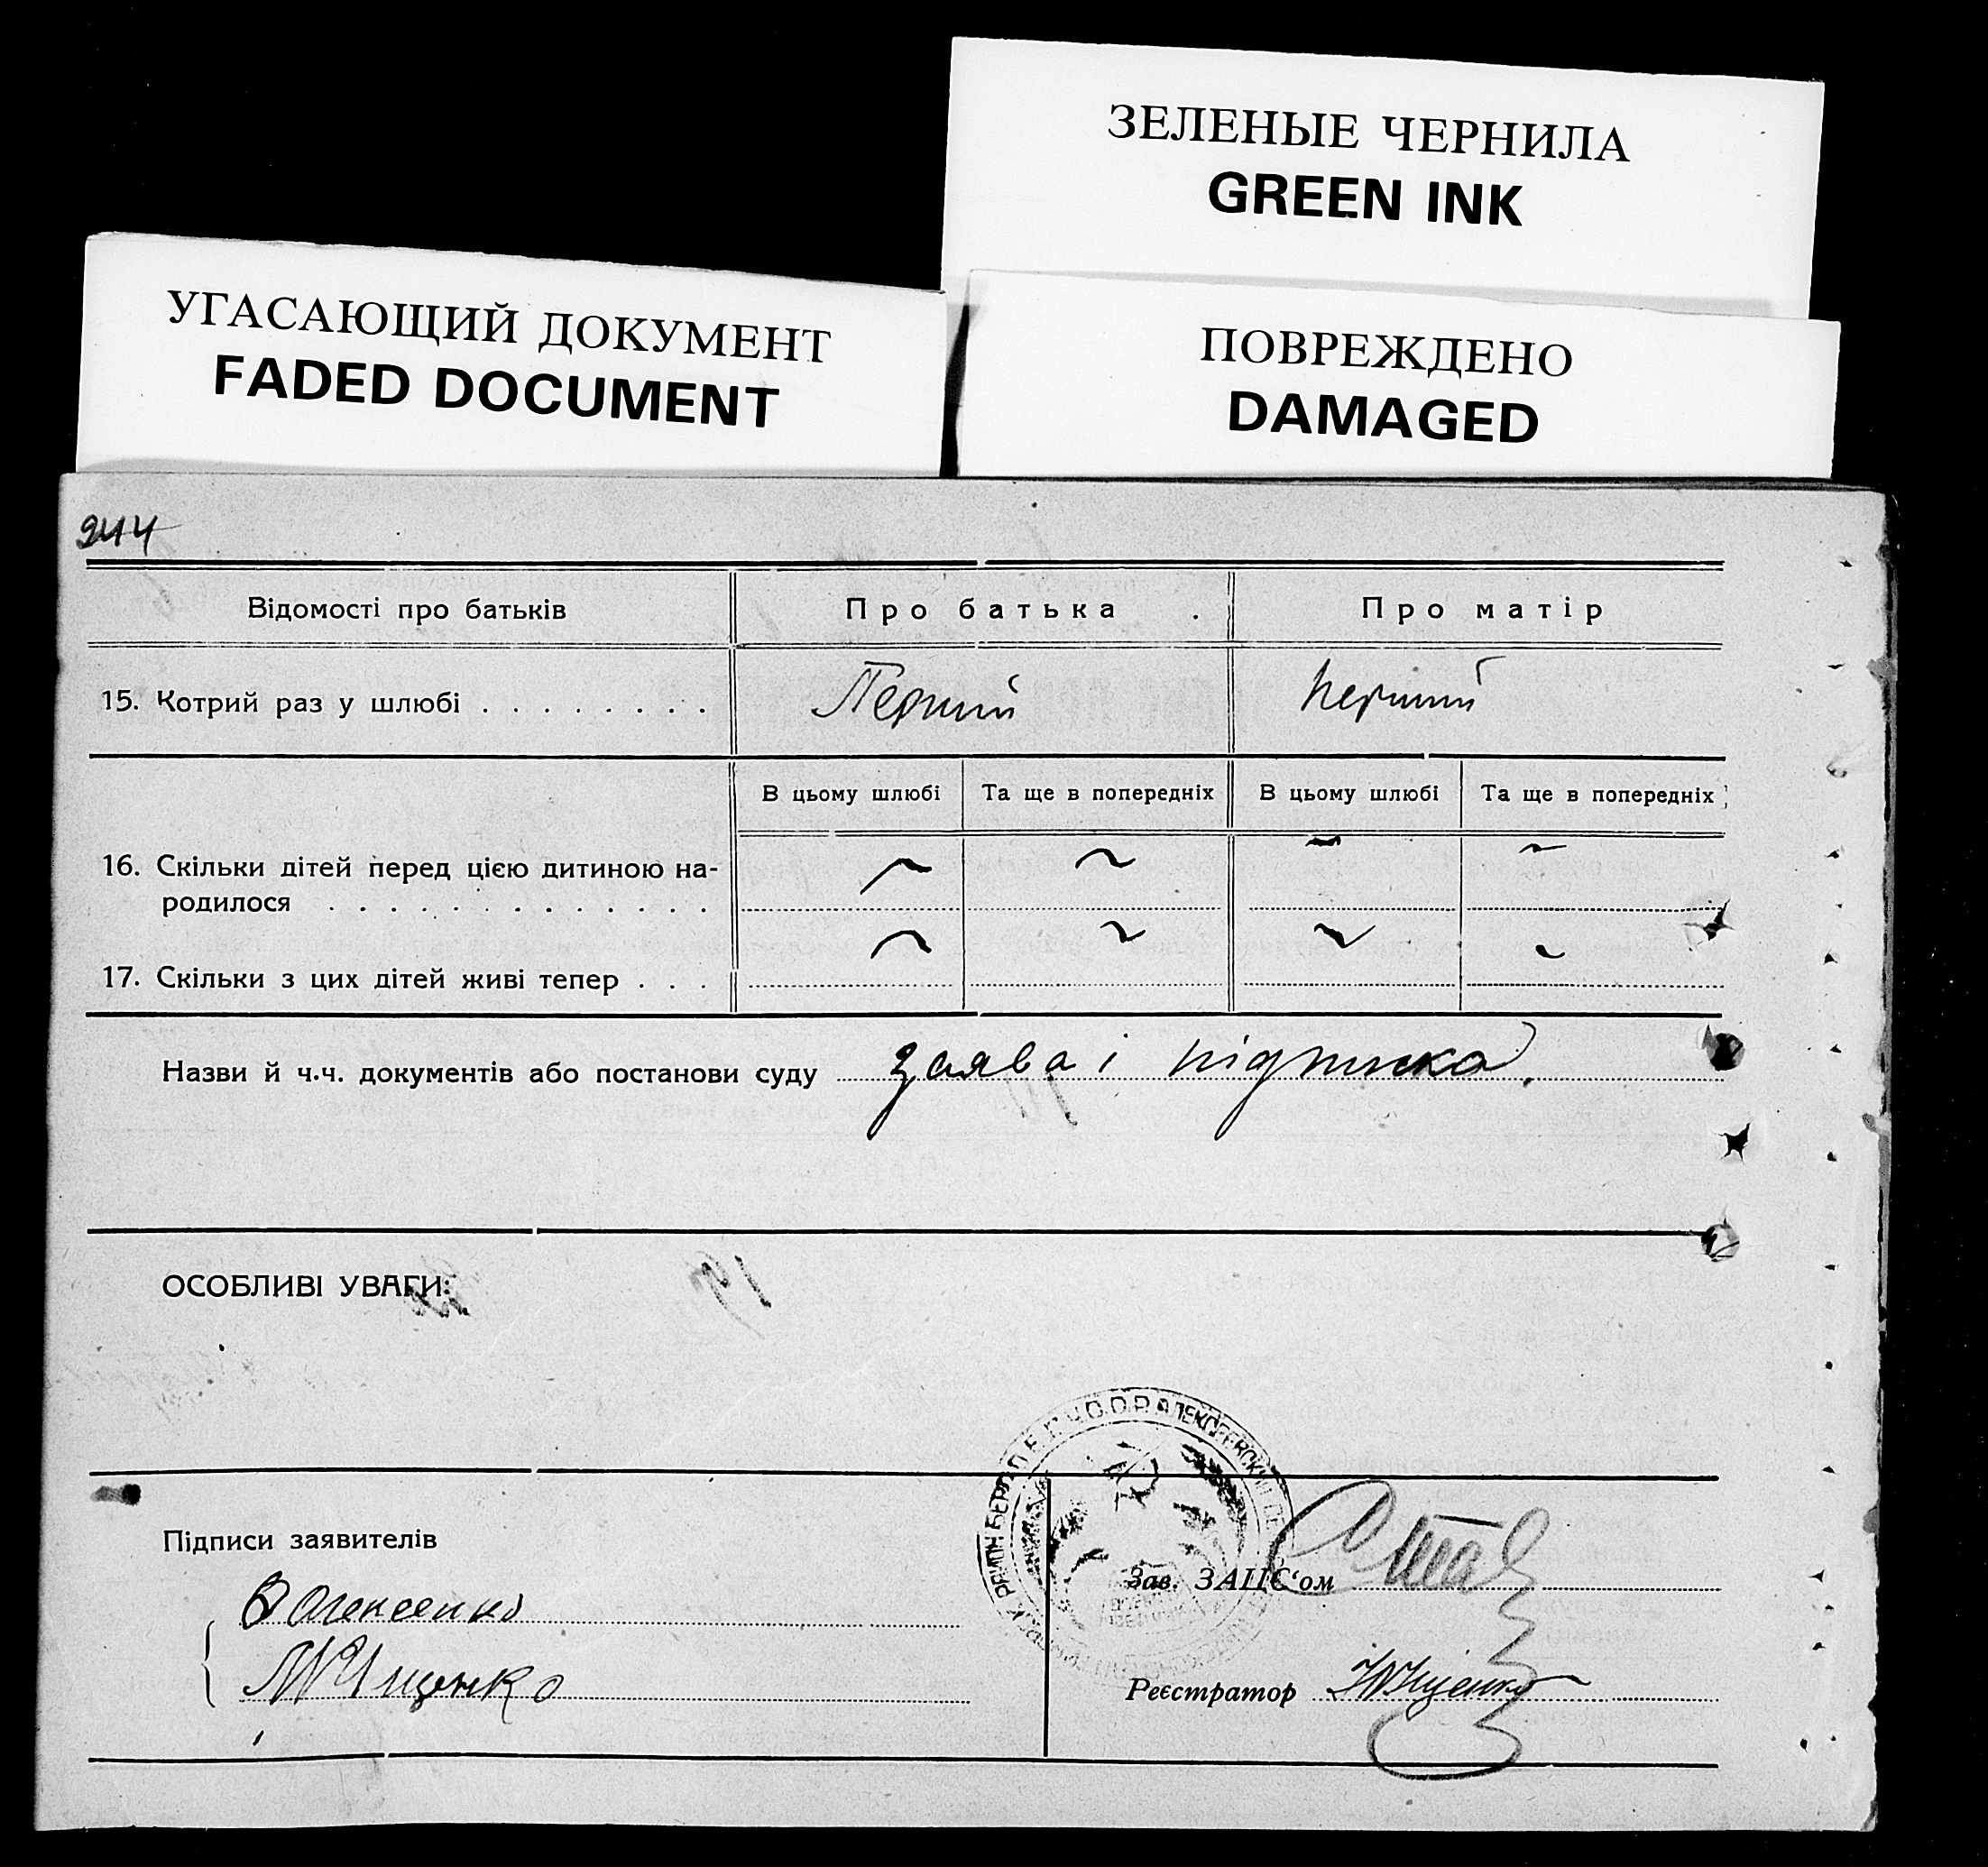 ЗЕЛЕНЫЕ ЧЕРНИЛА
GREEN INK
УГАСАЮЩИЙ ДОКУМЕНТ
FADED DOCUMENT
ПОВРЕЖДЕНО
DAMAGED
244
Відомості про батьків
Про батька
Про матір
15. Котрий раз у шлюбі . . . . . . . .
Перший
перший
В цьому шлюбі
Та ще в попередніх
В цьому шлюбі
Та ще в попередніх
16. Скільки дітей перед цією дитиною на-
родилося . . . . . . . . . . . . .
17. Скільки з цих дітей живі тепер . . .
Назви й ч.ч. документів або постанови суду заява і підписка.
ОСОБЛИВІ УВАГИ:
Підписи заявителів
Зав. ЗАЦС'ом
Реєстратор